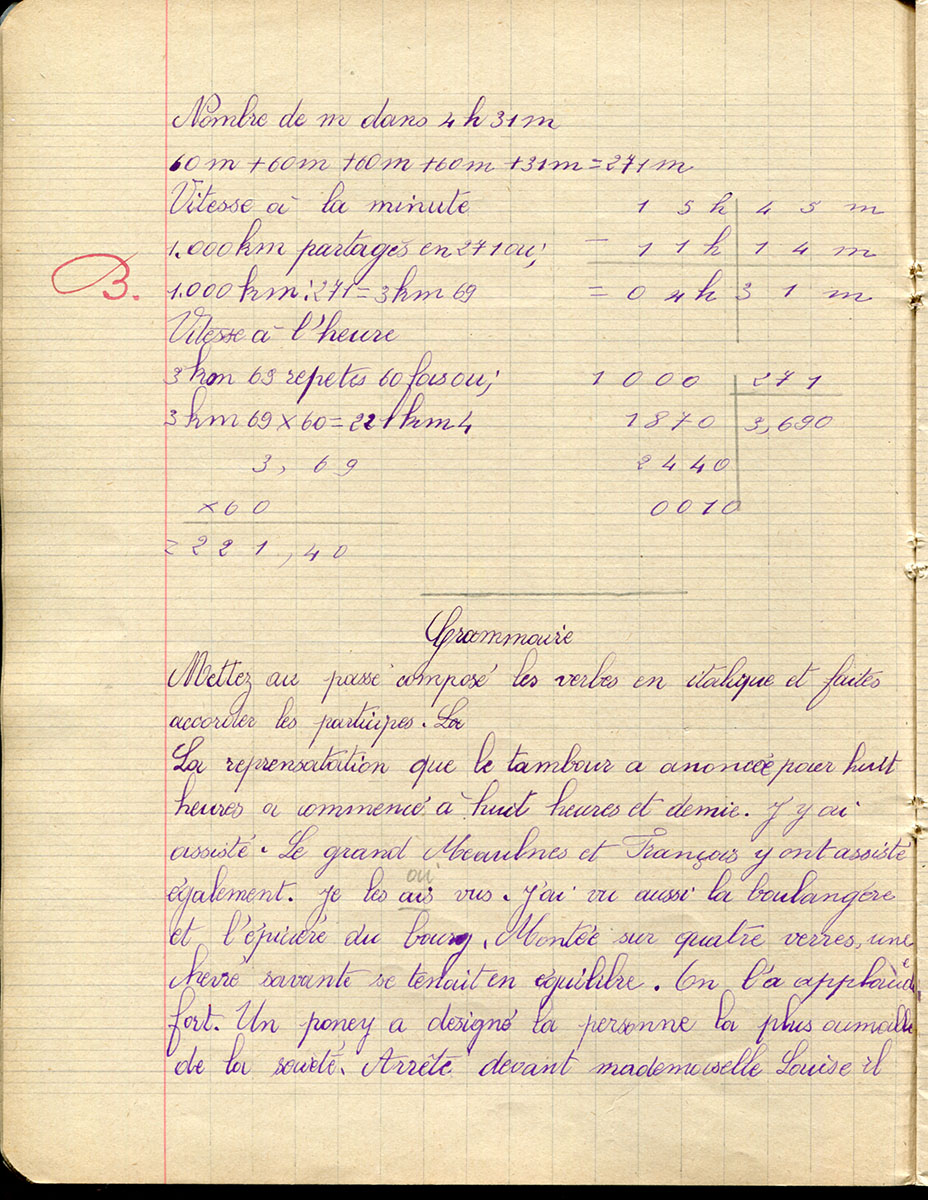 Nombre de m dans 4 h 31 m
60 m + 60 m + 60 m + 60 m + 31 m = 271 m
Vitesse à la minute
1.000 km partages en 271 ou;
B.
1.000 km : 271 = 3 km 69
Vitesse à l'heure
3 km 69 repetes 60 fois ou;
3 km 69 x 60 = 221 km 4
3, 69
x 60
= 221,40
15 h 45 m
- 11 h 14 m
= 04 h 31 m
1000 271
1870 3,690
2440
0010
Grammaire
Mettez au passé composé les verbes en italique et faites
accorder les participes. La
La reprensatation que le tambour a anoncée pour huit
heures a commencé à huit heures et demie. J'y ai
assisté. Le grand Meaulnes et François y ont assisté
ai
également. Je les ais vus. J'ai vu aussi la boulangère
et l'épicère du bourg. Montée sur quatre verres, une
chevre savante se tenait en équilibre. On l'a
fort. Un poney a désigné la personne la plus
de la société. Arrêté devant mademoiselle Louise il